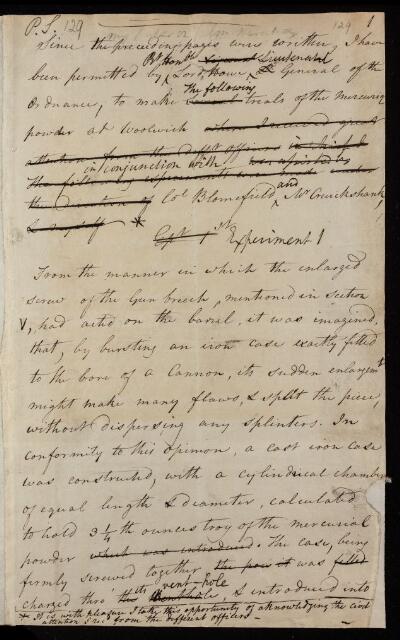 P.S. 129 129 1
Since the preceeding pages were written, I have
Rt Honble Lieutenant
been permitted by Lord Howe General of the
the following
Ordnance, to make trials of the mercurial
powder at Woolwich when I received great
attention from the different officers in chief &
in conjunction with was assisted by
the following experiments were made under
and
the direction of Col Blomefield, Mr Cruickshank,
& myself *
Expt 1st Experiment 1
From the manner in which the enlarged
screw of the Gun breech, mentioned in section
V, had acted on the barrel, it was imagined,
that, by bursting an iron case exactly fitted
to the bore of a Cannon, its sudden enlargemt
might make many flaws, & split the piece,
without dispersing any splinters. In
conformity to this opinion, a cast iron case
was constructed, with a cylindrical chamber
of equal length & diameter, calculated
to hold 3 1/4th ounces troy of the mercurial
powder which was introduced. The case, being
firmly screwed together, was filled
its vent-hole
charged thro' the, & introduced into
* It is with pleasure I take this opportunity of aknowledging the civil
attention I recd from the different officers